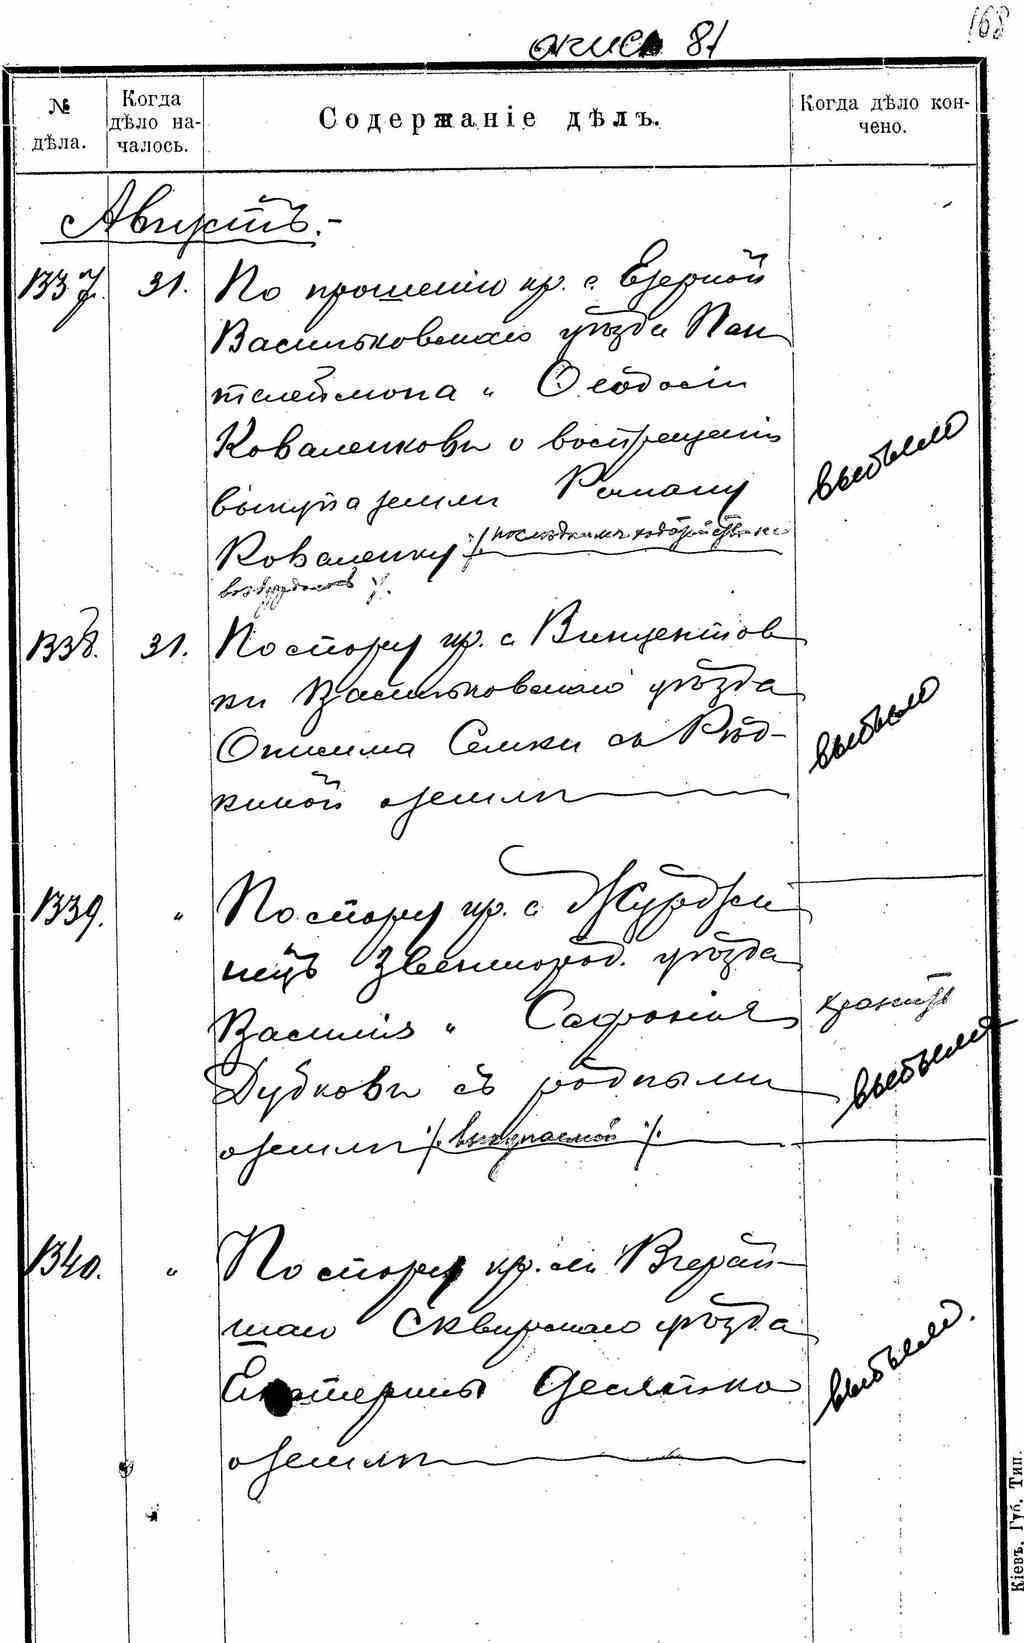 168
опись 81
№ дѣла.
Когда дѣло началось.
Содержаніе дѣлъ.
Когда дѣло кончено.
Августъ.-
1337. 31. По прошенію кр. с. Езерной
Васильковскаго уѣзда Пан
телеймона и Ѳеодосіи
Коваленковы о воспрещеніи
выкупа земли Роману
Коваленку
выбыло
1338. 31. По спору кр. с. Винцентов
ки Васильковскаго уѣзда
Онисима Семки съ Род-
киной о земли
выбыло
1339. " По спору кр. с. Журжи
нецъ Звенигород. уѣзда
Василія и Сафронія
хранить
Дубковы съ родными
выбыло
о земли /. выкупаемой /.
1340. " По спору кр. м. Вчерай-
шаго Сквирскаго уѣзда
Екатерины Десятко
выбыло.
о земли
Кіевъ, Губ. Тип.